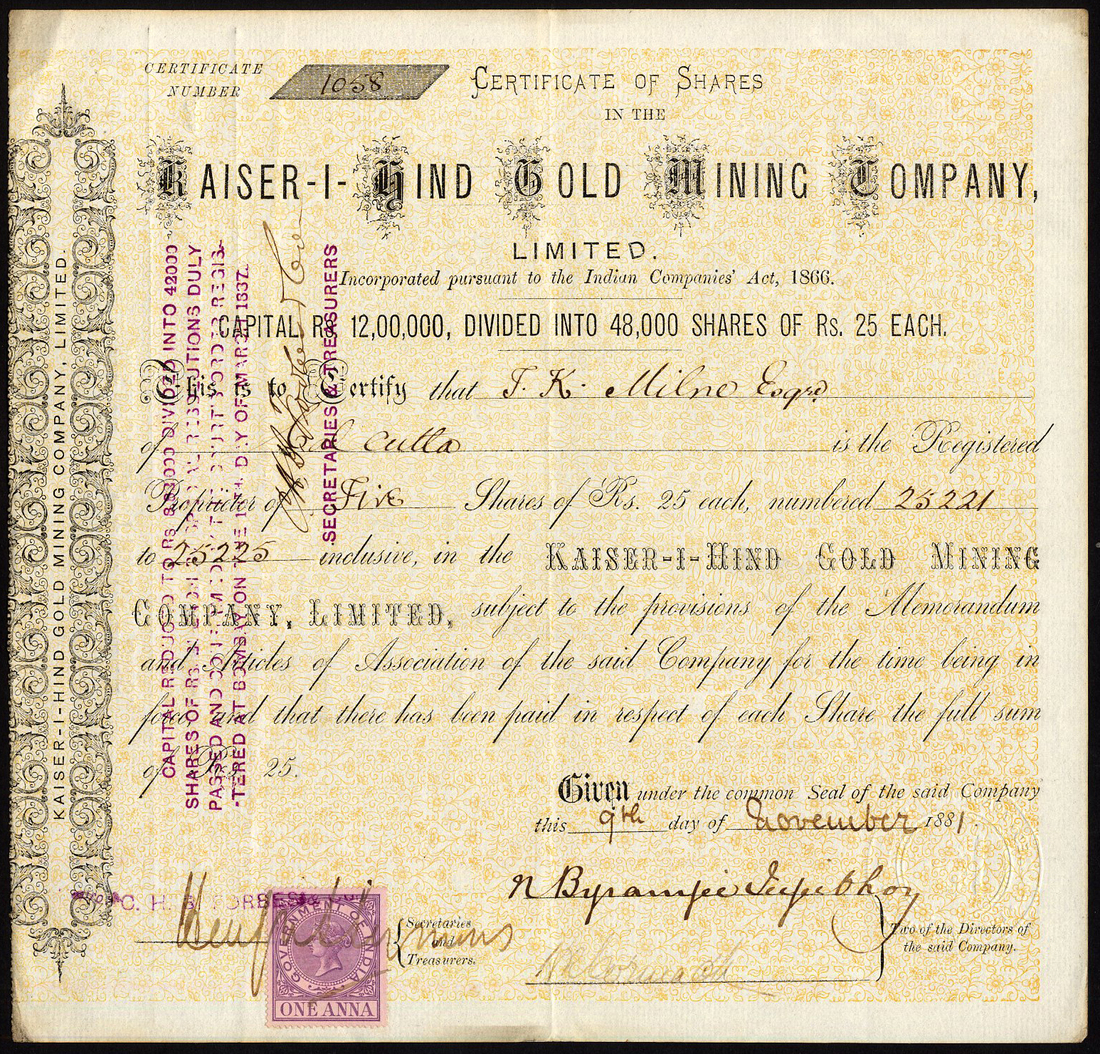 CERTIFICATE
NUMBER
1058
CERTIFICATE OF SHARES
IN THE
KAISER-I-HIND GOLD MINING COMPANY,
LIMITED.
Incorporated pursuant to the Indian Companies' Act, 1866.
CAPITAL Rs. 12,00,000, DIVIDED INTO 48,000 SHARES OF Rs. 25 EACH.
This is to Certify that J. K. Milne Esqre
of Calcutta is the Registered
Proprietor of Five Shares of Rs. 25 each, numbered 25221
to 25225 inclusive, in the KAISER-I-HIND GOLD MINING
COMPANY, LIMITED, subject to the provisions of the Memorandum
and Articles of Association of the said Company for the time being in
force and that there has been paid in respect of each Share the full sum
of Rs. 25.
Given under the common Seal of the said Company
this 9th day of November 1881.
N Byramjee Jejeebhoy
Two of the Directors of
the said Company.
Secretaries
and
Treasurers.
GOVERNMENT OF INDIA
ONE ANNA
KAISER-I-HIND GOLD MINING COMPANY, LIMITED.
CAPITAL REDUCED TO Rs DIVIDED INTO 42000
SHARES OF Rs. RESOLUTIONS DULY
PASSED AND CONFIRMED COURT'S ORDER REGIS-
-TERED AT BOMBAY ON THE DAY OF MARCH
SECRETARIES & TREASURERS
C. H. B. FORBES &